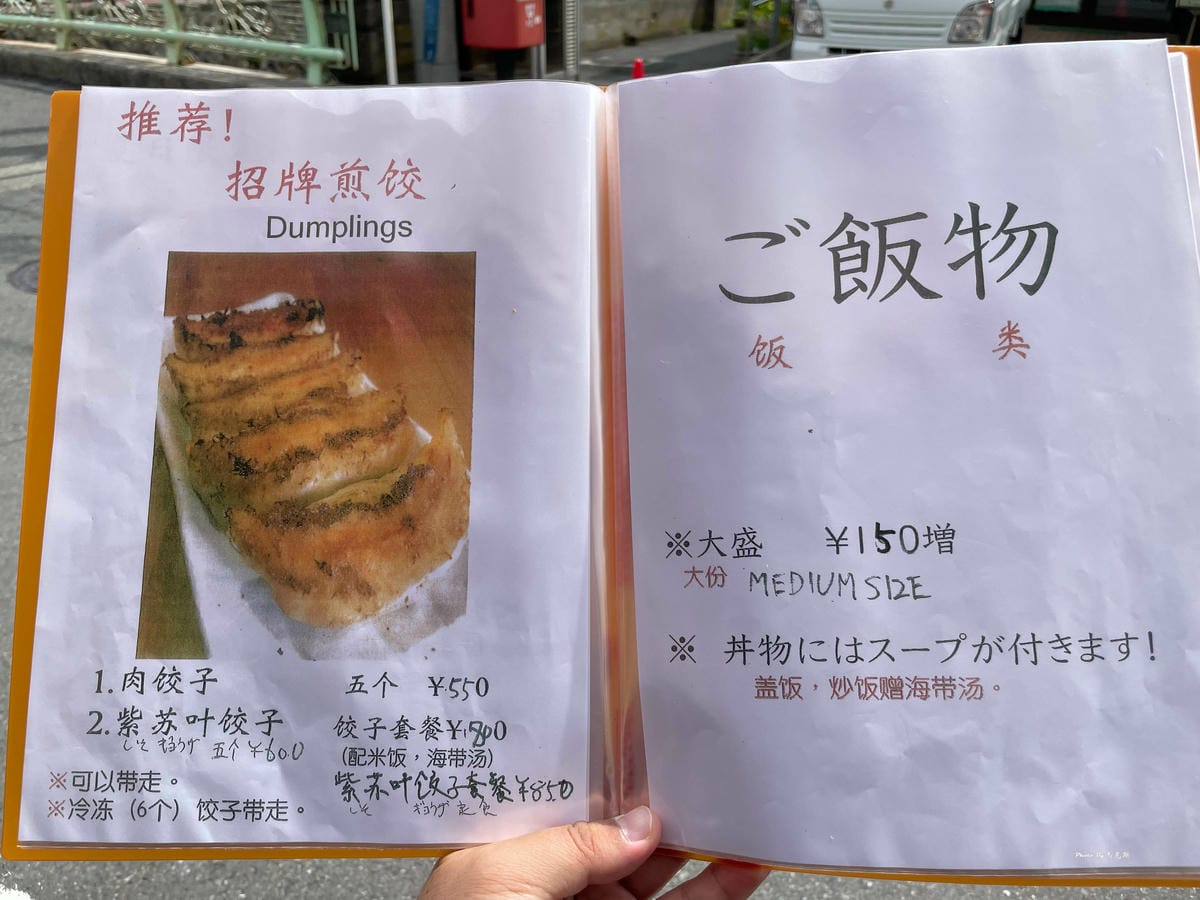 推荐!
招牌煎饺
Dumplings
1.肉饺子 五个 ¥550
2.紫苏叶饺子 饺子套餐¥800
しそ ギョウザ 五个 ¥600 (配米饭，海带汤)
※可以带走。 紫苏叶饺子套餐¥850
しそ ギョウザ 定食
※冷冻（6个）饺子带走。
ご飯物
饭 类
※大盛 ¥150増
大份 MEDIUM SIZE
※ 丼物にはスープが付きます!
盖饭，炒饭赠海带汤。